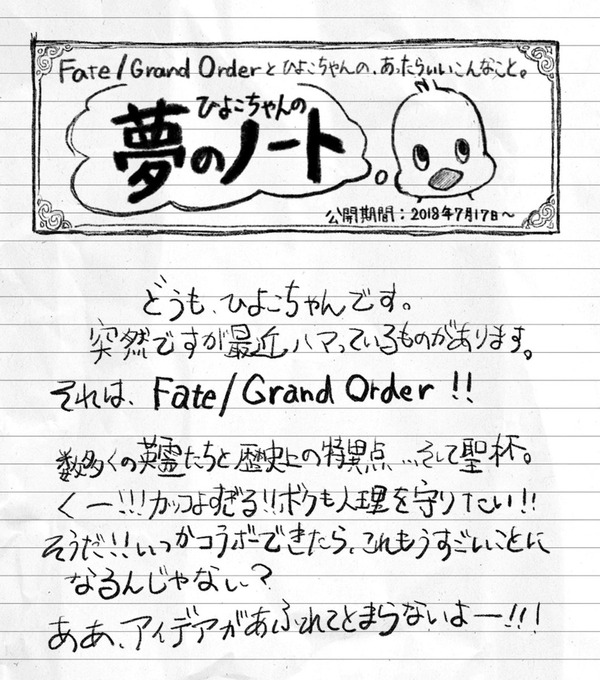 Fate/Grand Orderとひよこちゃんの、あったらいいこんなこと。
ひよこちゃんの
夢のノート
公開期間：2018年7月17日〜
どうも、ひよこちゃんです。
突然ですが最近ハマっているものがあります。
それは、Fate/Grand Order!!
数多くの英霊たちと歴史上の特異点…そして聖杯。
くー!!!カッコよすぎる!!ボクも人理を守りたい!!
そうだ!!いつかコラボできたら、これもうすごいことに
なるんじゃない？
ああ、アイデアがあふれてとまらないよー!!!